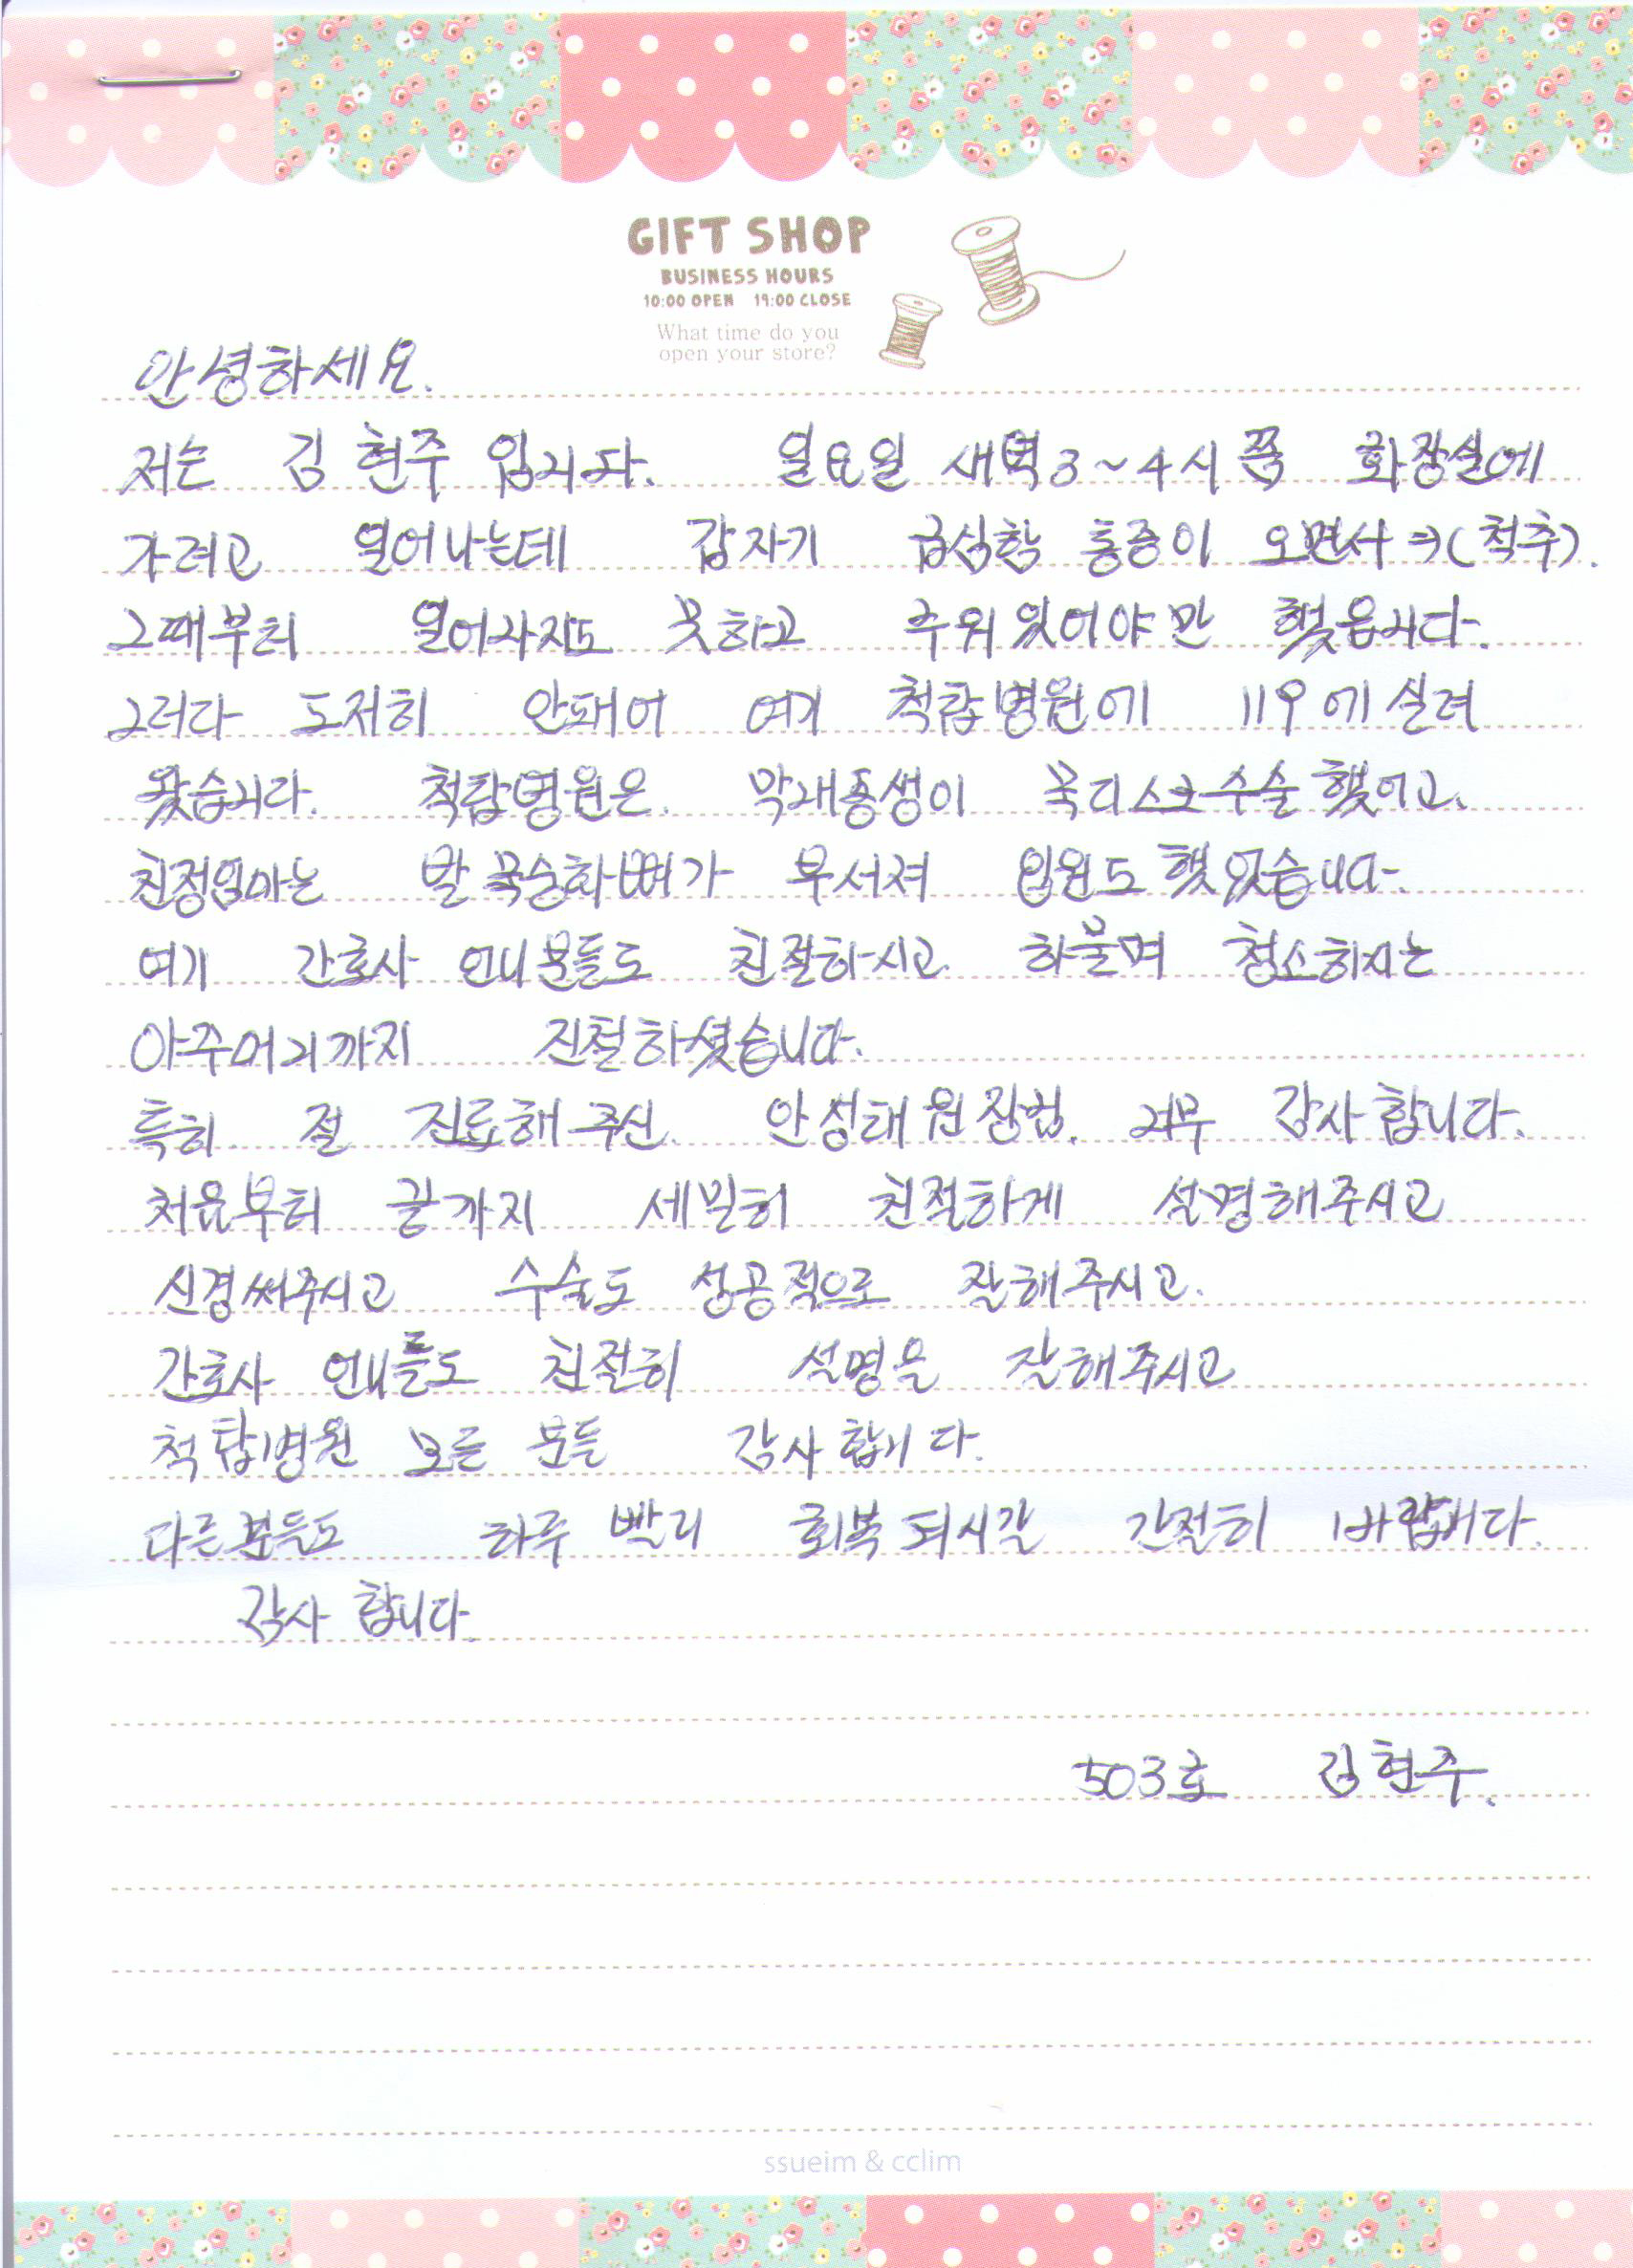 GIFT SHOP
BUSINESS HOURS
10:00 OPEN 19:00 CLOSE
What time do you
open your store?
안녕하세요.
저는 김현주 입니다. 일요일 새벽 3~4시쯤 화장실에
가려고 일어나는데 갑자기 급심한 통증이 오면서 → (척추).
그때부터 일어나지도 못하고 누워 있어야만 했읍니다.
그러다 도저히 안돼어 여기 척탑병원에 119에 실려
왔습니다. 척탑병원은 막내동생이 목디스크수술 했어고.
친정엄마는 발 꿈순화뼈가 부서져 입원도 했었습니다.
여기 간호사 언니분들도 친절하시고 하물며 청소하시는
아주머니까지 친절하셨습니다.
특히 절 진료해 주신 안성태 원장님. 너무 감사합니다.
처음부터 끝까지 세밀히 친절하게 설명해주시고
신경써주시고 수술도 성공적으로 잘해주시고.
간호사 언니들도 친절히 설명을 잘해주시고
척탑병원 모든 분들 감사합니다.
다른분들도 하루 빨리 회복되시길 간절히 바랍니다.
감사 합니다.
503호 김현주.
ssueim & cclim